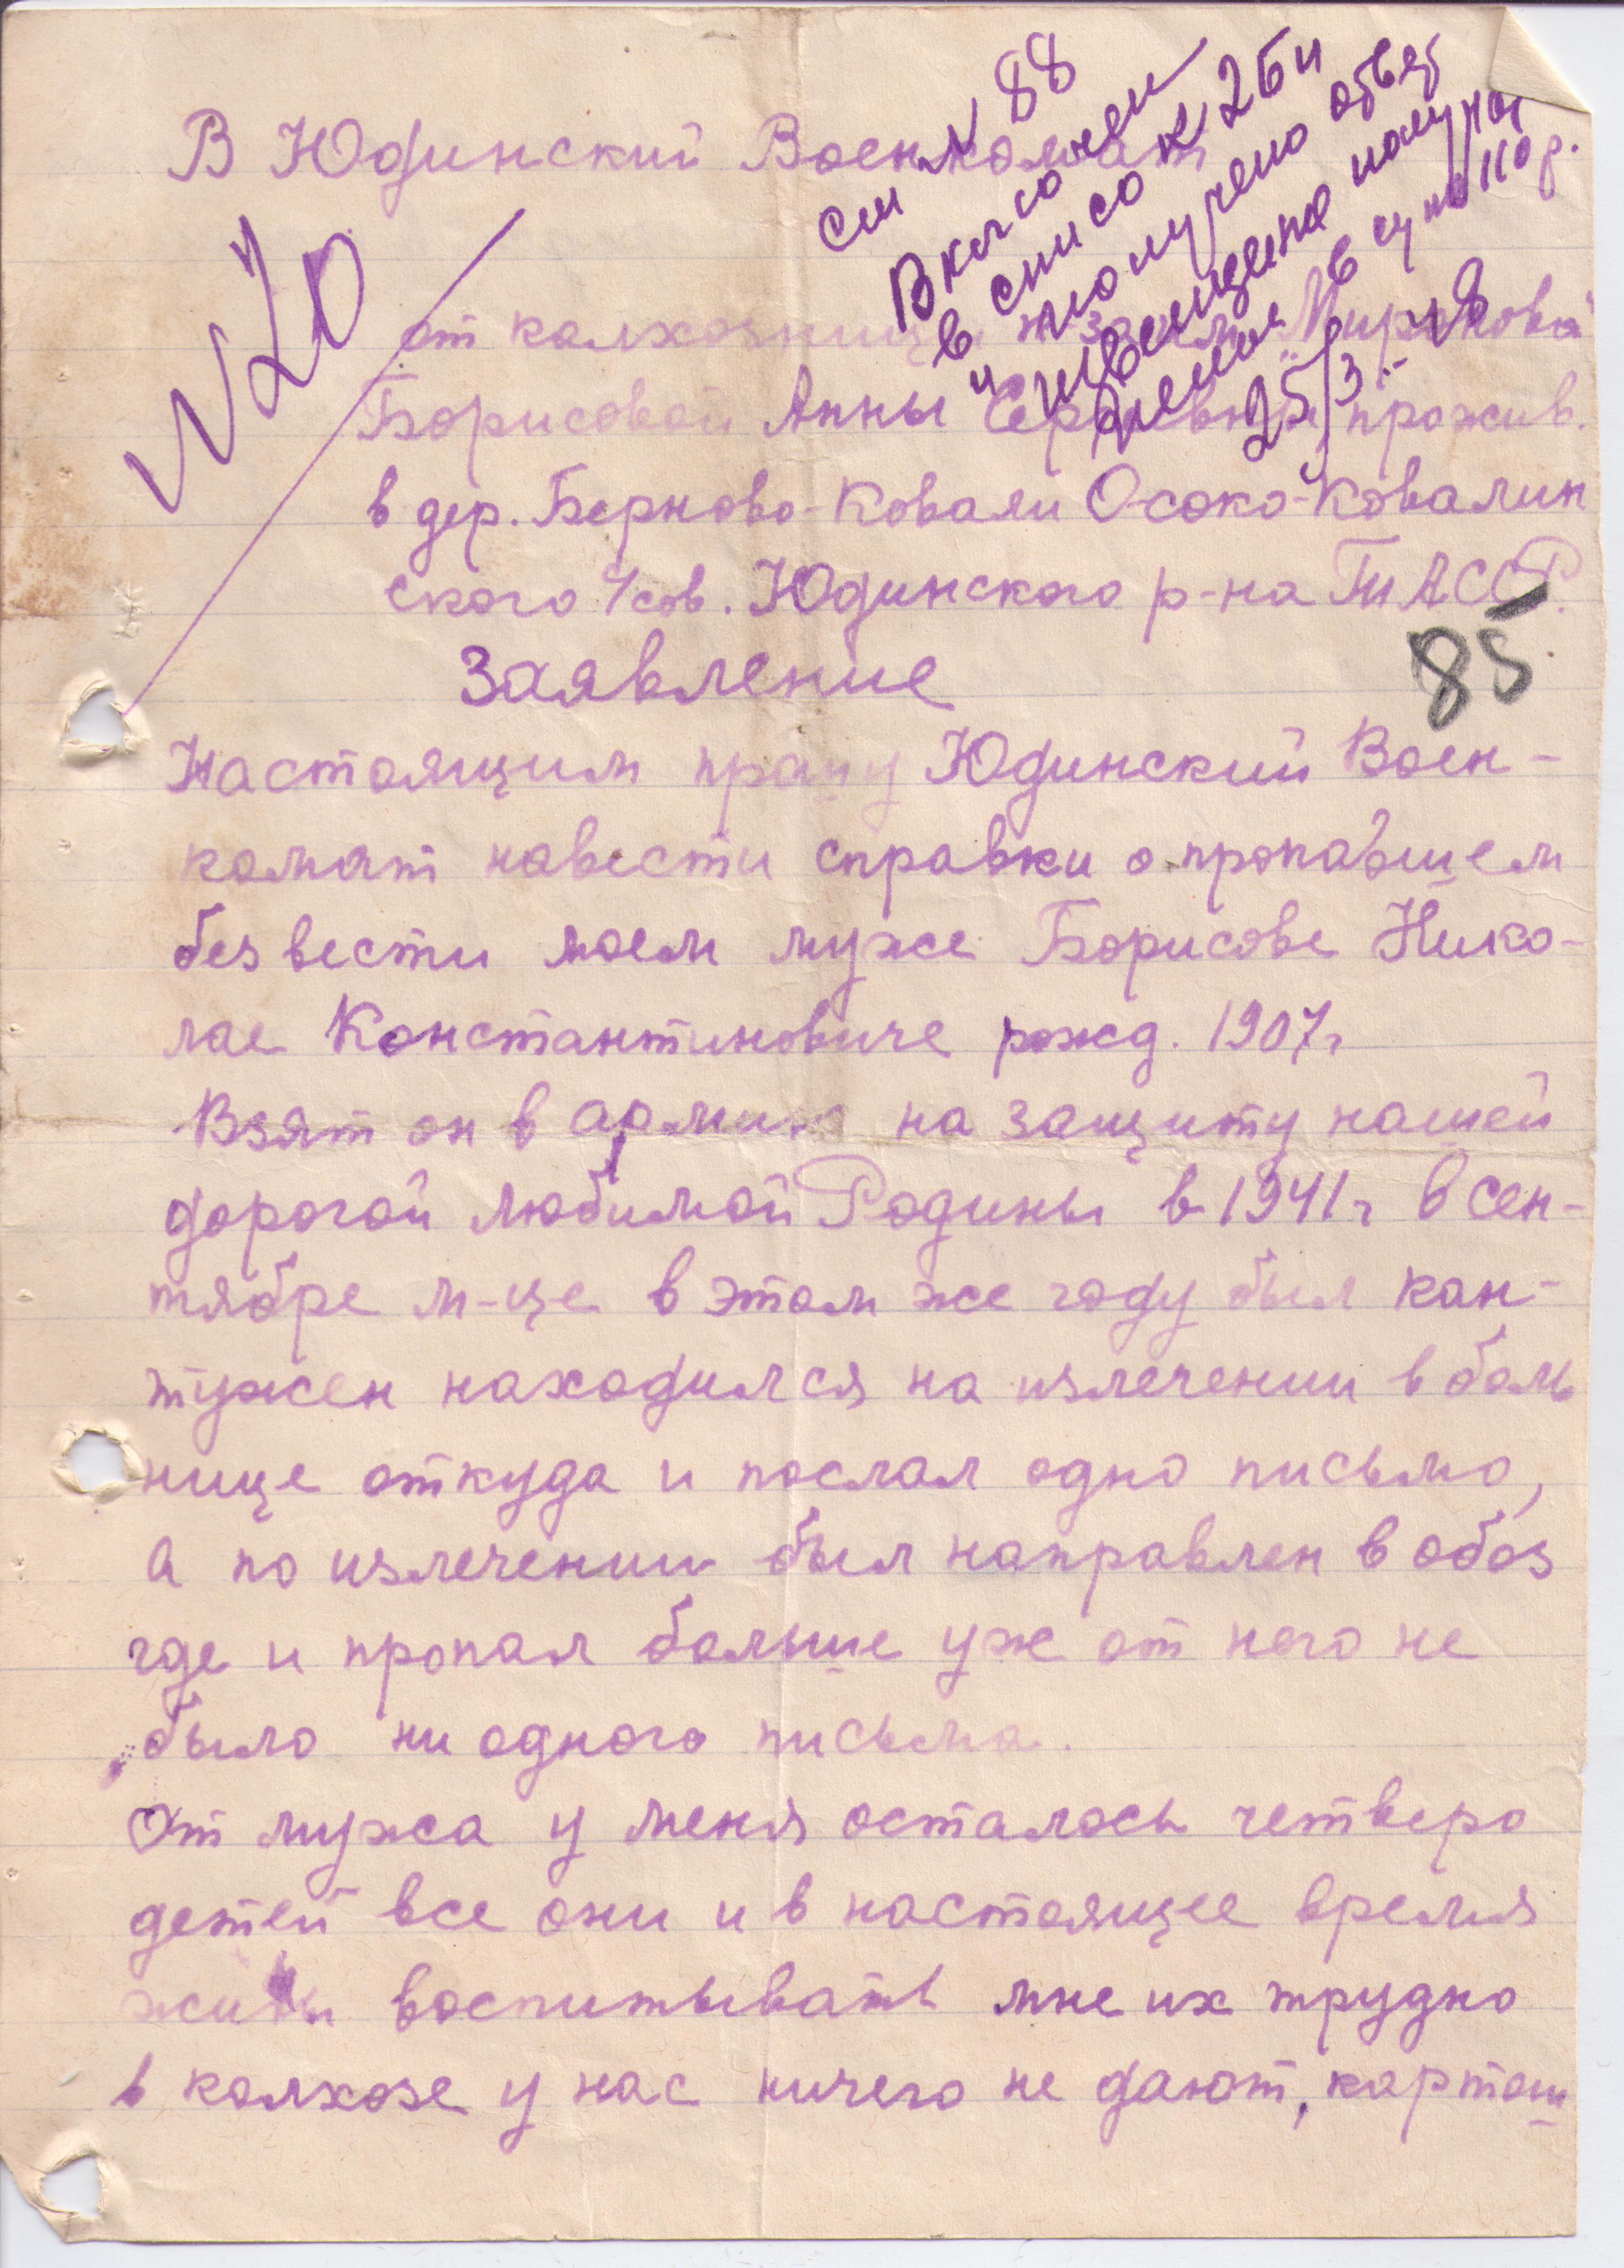 см л 88
Включен
в список 2би
и получено ответ
извещена получает
пенсия в сумме 110 р.
25/3.-
№20
В Юдинский Военкомат
от колхозницы к-за им. "Миронова"
Борисовой Анны Сергеевны, прожив.
в дер. Берново-Ковали Осоко-Ковалин
ского с/сов. Юдинского р-на ТАССР.
85
Заявление
Настоящим прошу Юдинский Воен-
комат навести справки о пропавшем
без вести моем муже Борисове Нико-
лае Константиновиче рожд. 1907г
Взят он в армию на защиту нашей
дорогой любимой Родины в 1941г в сен-
тябре м-це в этом же году был кон-
тужен находился на излечении в боль
нице откуда и послал одно письмо,
а по излечении был направлен в обоз
где и пропал больше уж от него не
было ни одного письма.
От мужа у меня осталось четверо
детей все они и в настоящее время
живы воспитывать мне их трудно
в колхозе у нас ничего не дают, картош